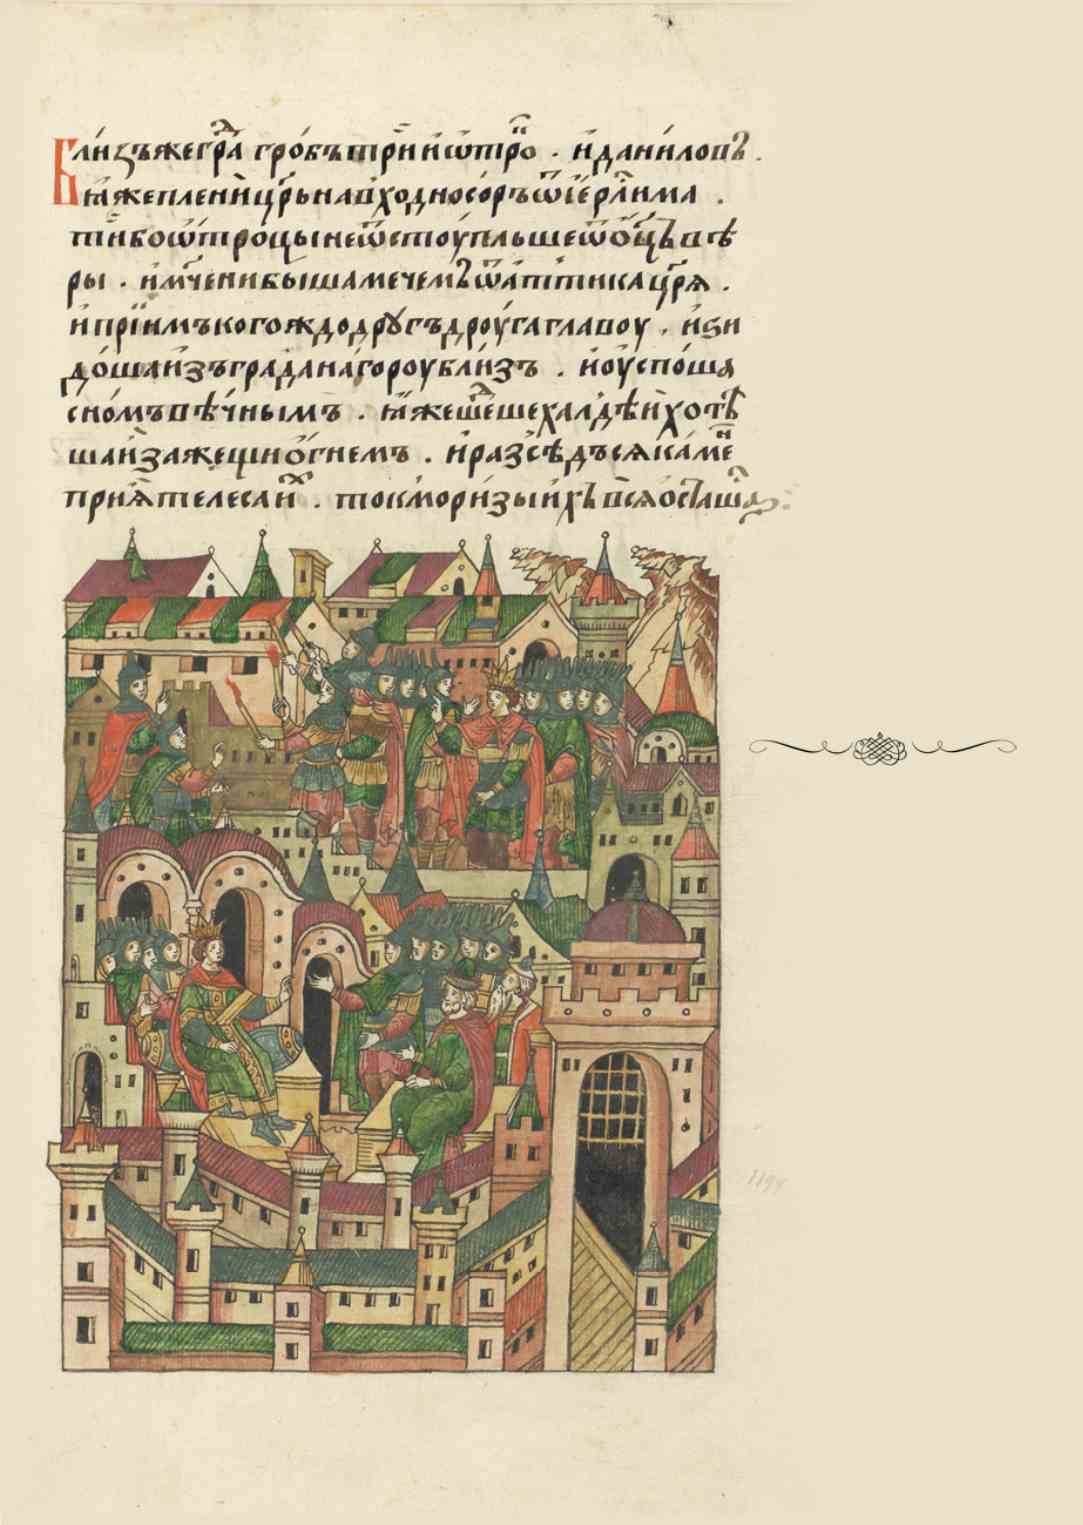 Близъ же гра гробъ трии ѿтро . и данилов .
ꙗже плени црь навходносоръ ѿ іерлима .
ти бо ѿтроцы не ѿстоупльше ѿ оцъ вѣ
ры . имчени быша мечемъ ѿ аттика цря .
и приимъ когождо другъ дроуга главоу . изи
доша изъ града на гороу близъ . и оуспоша
сномъ вѣчнымъ . ꙗже шеше халдѣи хотѣ
ша изажещи огнемъ . и разсѣдъся камен
прия телеса их . токмо ризы ихъ вся осташа
1194